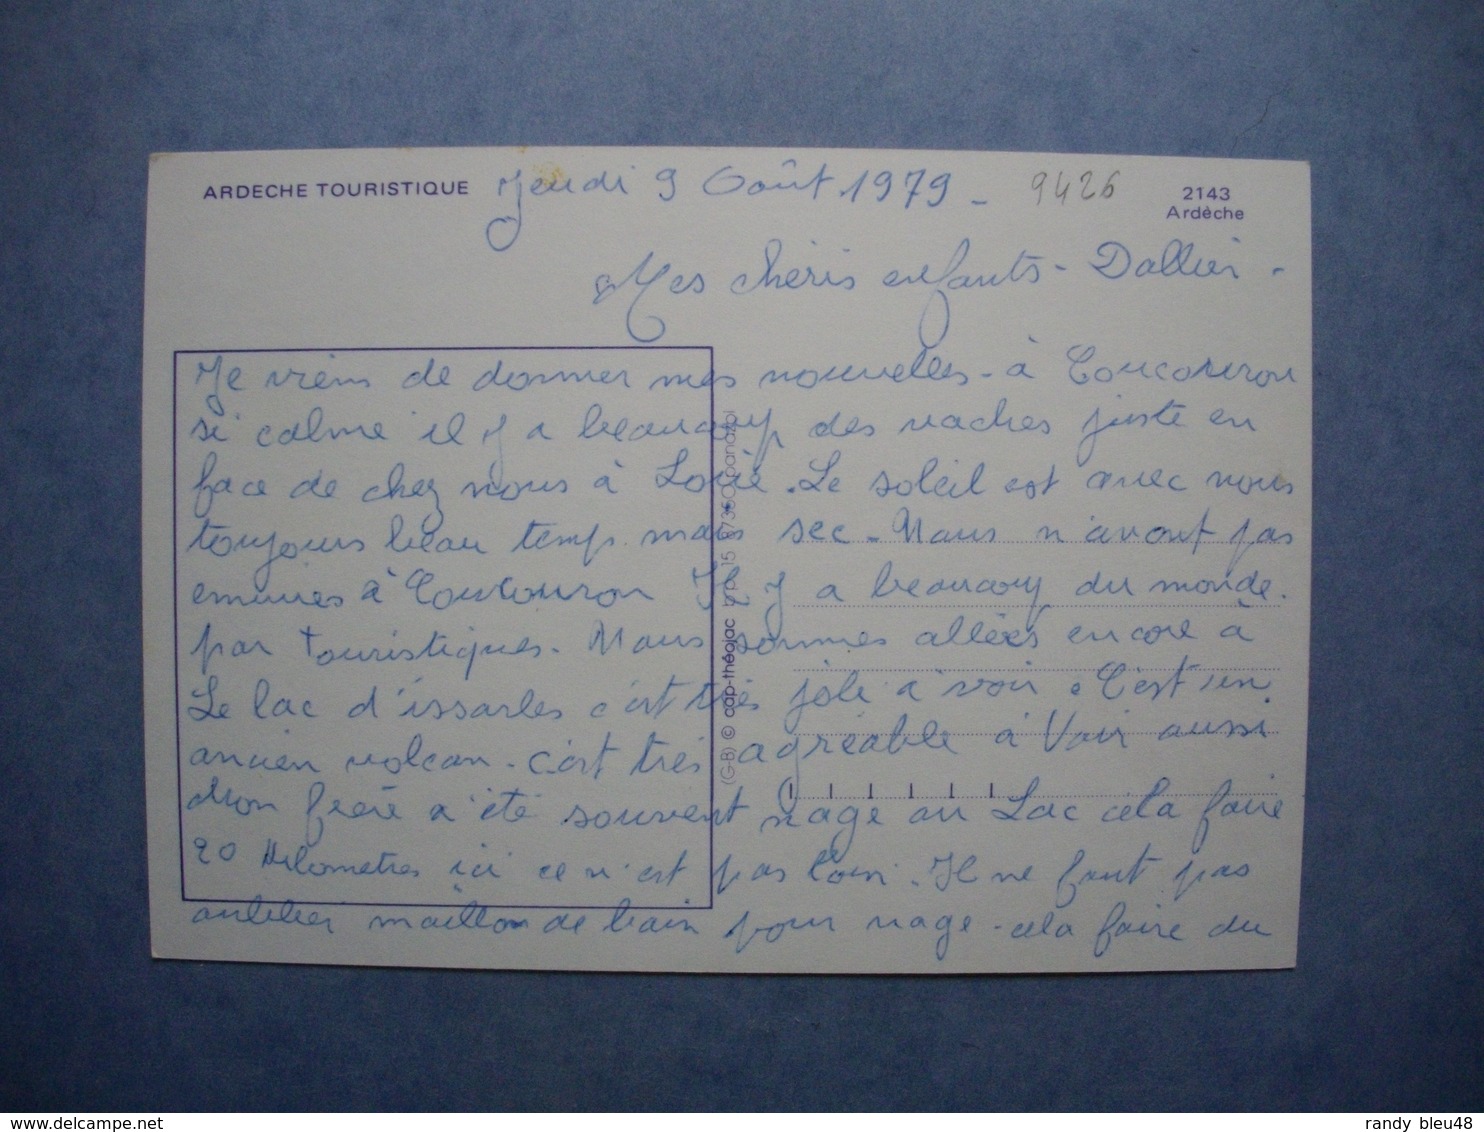 ARDECHE TOURISTIQUE Jeudi 9 Août 1979 - 9426 2143
Ardèche
Mes chéris enfants - Dallier -
Je viens de donner mes nouvelles - à Coucouron
si calme il y a beaucoup des vaches juste en
face de chez nous à Louie. Le soleil est avec nous
toujours beau temp mais sec - Nous n'avont pas
à Coucouron Il y a beaucoup du monde.
par touristiques. Nous sommes allées encore à
Le lac d'issarles c'est très jolie a voir. C'est un
ancien volcan - c'est très agréable à Voir aussi
Mon frère a été souvent nage au Lac cela faire
20 kilometres ici ce n'est pas loin. Il ne faut pas
oublier maillon de bain pour nage - cela faire du
(G-B) © cap-théojac b.p. 15 87350 panazol
randy_bleu48